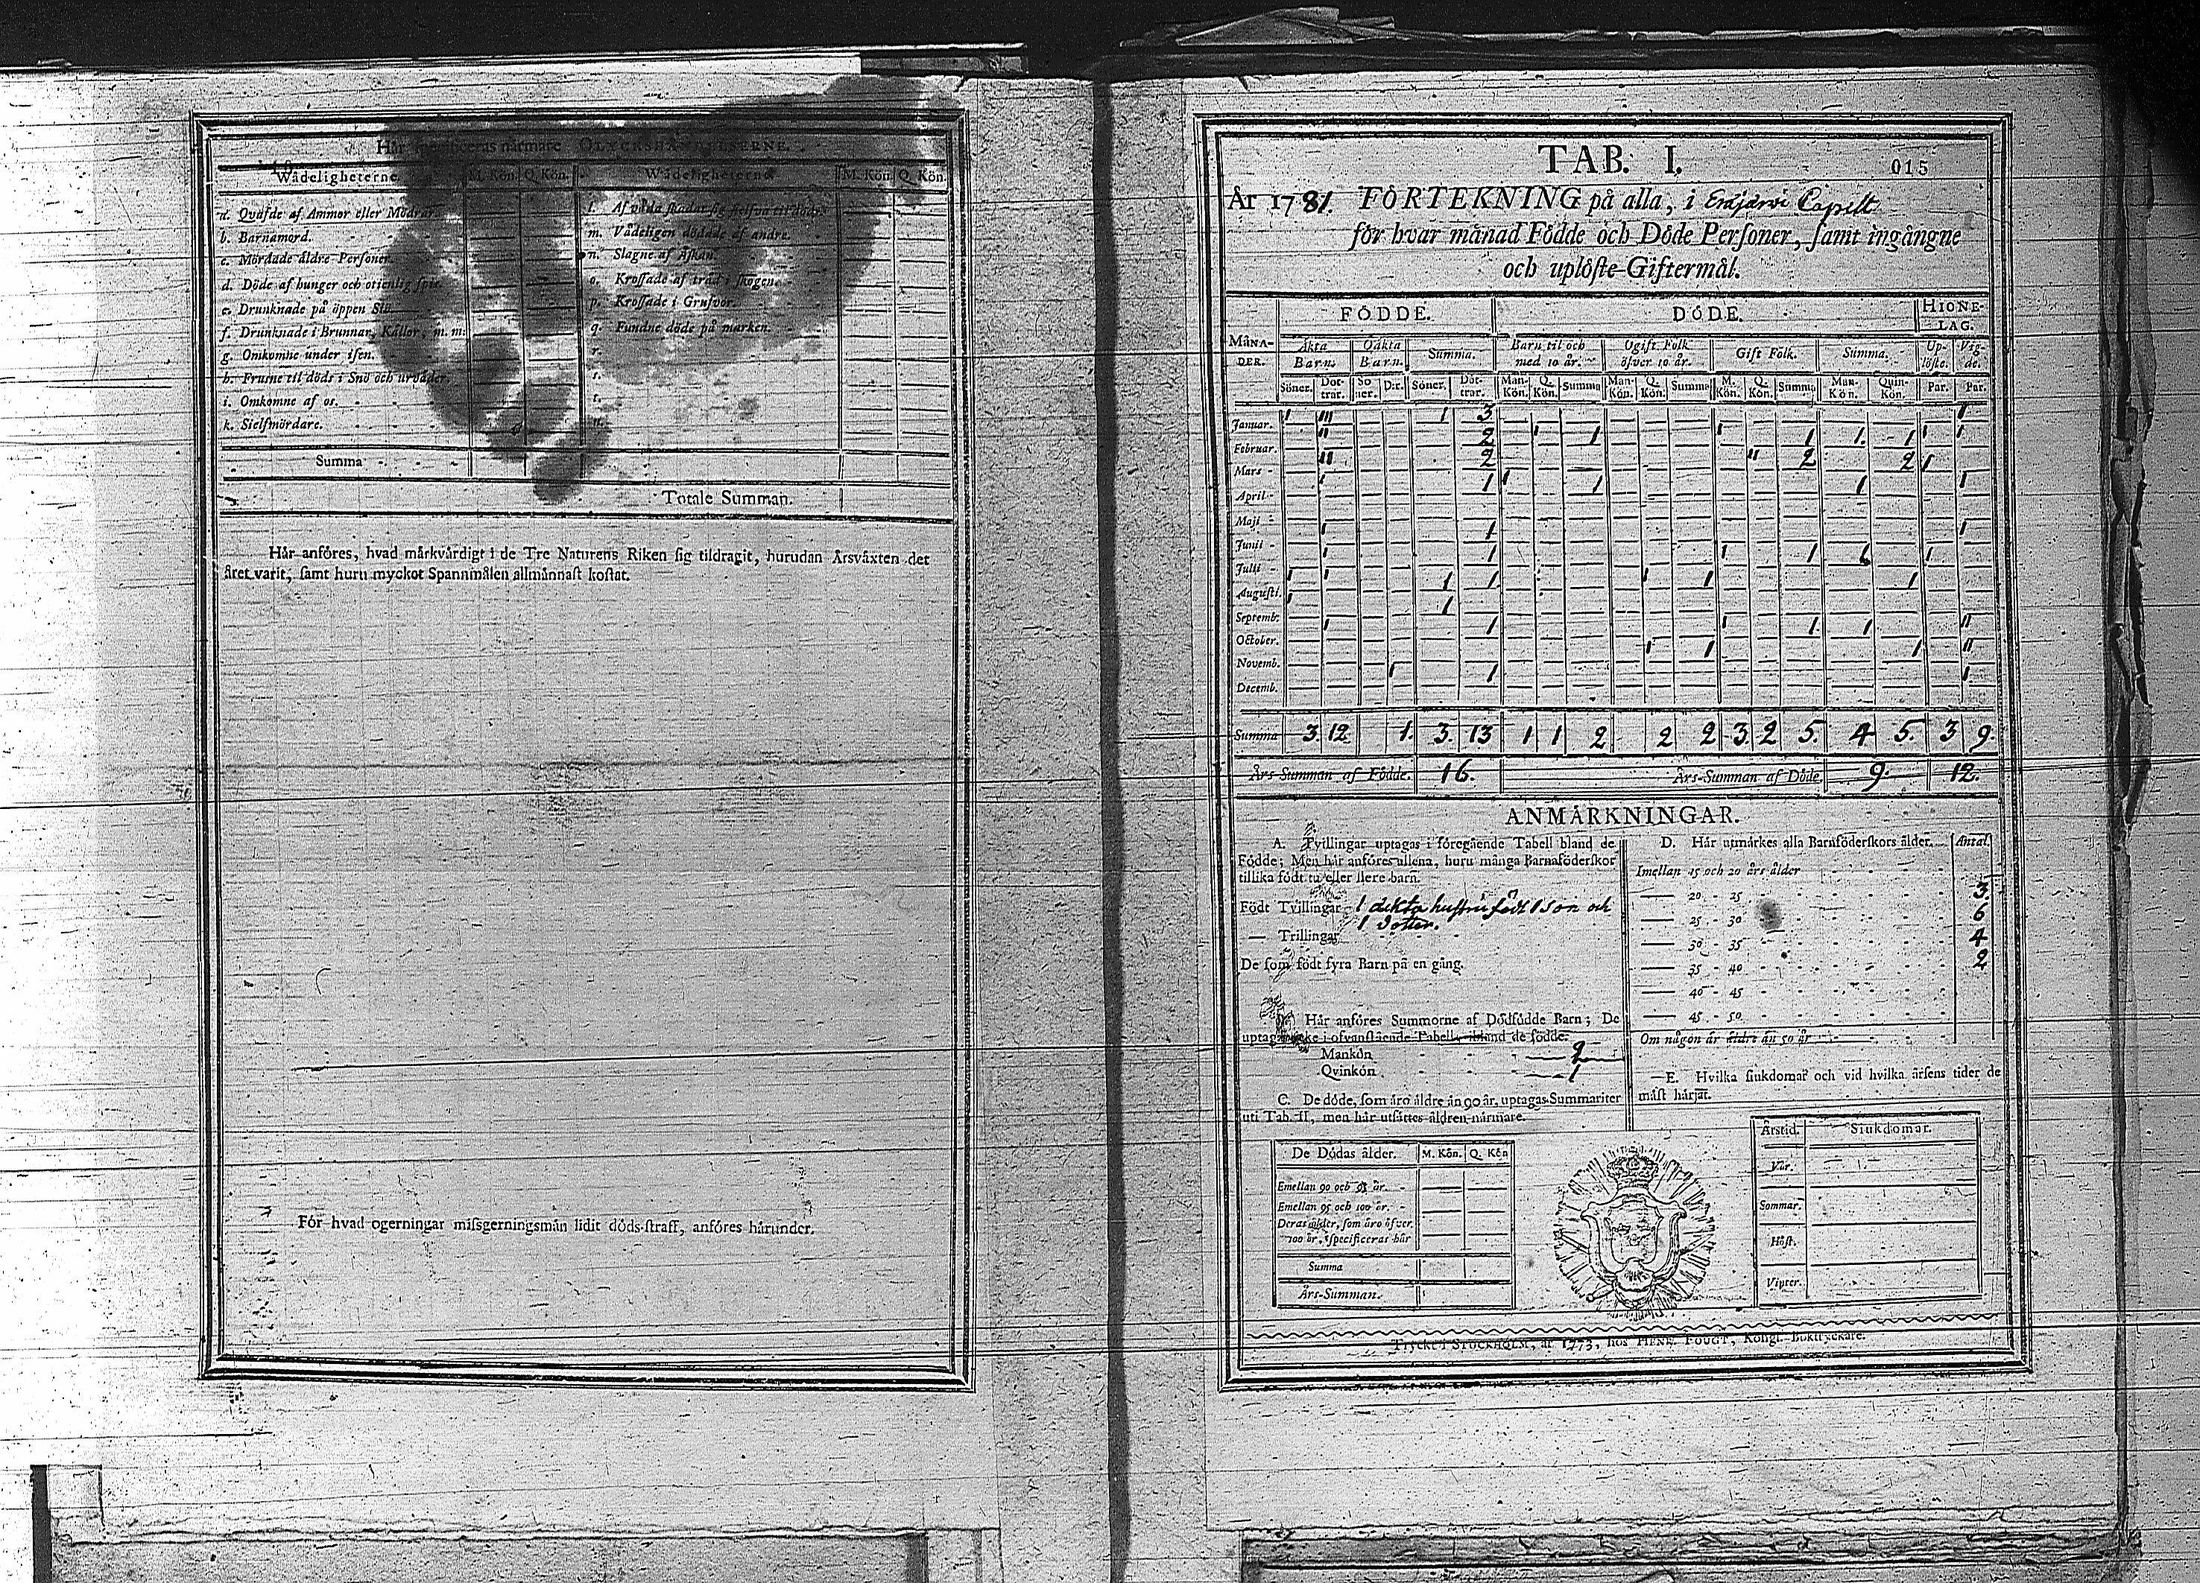 Här specificeras närmare OLYCKSHÄNDELSERNE.
Wådeligheterne. M. Kön. Q. Kön. Wådeligheterne M. Kön. Q. Kön.
a. Qväfde af Ammor eller Mödrar
b. Barnamord.
c. Mördade äldre Personer
d. Döde af hunger och otienlig spis
e. Drunknade på öppen Siö
f. Drunknade i Brunnar, Källor, m. m.
g. Omkomne under isen.
h. Frusne til döds i Snö och urväder
i. Omkomne af os.
k. Sielfmördare.
l. Af våda skadat sig sielfva til döds
m. Vådeligen dödade af andre.
n. Slagne af Åskan
o. Krossade af träd i skogen
p. Krossade i Grufvor.
q. Fundne döde på marken.
r.
s.
t.
Summa
Totale Summan.
Här anföres, hvad märkvärdigt i de Tre Naturens Riken sig tildragit, hurudan Årsväxten det
året varit, samt huru myckot Spannmålen allmännast kostat.
För hvad ogerningar missgerningsmän lidit döds-straff, anföres härunder.
TAB. I.
015
År 1781. FÖRTEKNING på alla, i Capell
för hvar månad Födde och Döde Personer, samt ingångne
och uplöste Giftermål.
MÅNA-DER. FÖDDE. DÖDE. HIONE-LAG.
Äkta Barn. Oäkta Barn. Summa. Barn til och med 10 år. Ogift Folk öfver 10 år. Gift Folk. Summa. Up-löste. Vig-de.
Söner. Döt-trar. Sö ner. D:r. Söner. Döt-trar. Man-Kön. Q. Kön. Summa Man-Kön. Q. Kön. Summa M. Kön. Q. Kön. Summa Man-Kön. Quin-Kön. Par. Par.
Januar. 1 111 1 3 1
Februar. 11 2 1 1 1 1 1 1 1 1
Mars 11 2 11 2 2 1
April 1 1 1 1 1 1
Maji
Junii 1 1 1
Julii 1 1 1 1 1
Augusti. 1 1 1 1 1 1 1
Septemb. 1 1
October. 1 1 1 1 1 11
Novemb. 1 1 1 11
Decemb. 1 1 1
Summa 3. 12 1. 3. 13 1 1 2 2 2 3. 2 5. 4 5. 3 9.
Års-Summan af Födde. 16. Års-Summan af Döde. 9. 12.
ANMÄRKNINGAR.
A. Tvillingar uptagas i föregående Tabell bland de
Födde; Men här anföres allena, huru många Barnaföderskor
tillika födt tu eller flere barn.
Födt Tvillingar 1 äkta hustru födt 1 son och
1 dotter.
— Trillingar
De som födt fyra Barn på en gång.
Här anföres Summorne af Dödfödde Barn; De
uptagas icke i ofvanstående Tabell ibland de födde.
Mankön 2
Qvinkön. 1
C. De döde, som äro äldre än 90 år, uptagas Summariter
uti Tab. II, men här utsättes åldren närmare.
De Dödas ålder. M. Kön. Q. Kön
Emellan 90 och 95 år.
Emellan 95 och 100 år.
Deras ålder, som äro öfver
100 år, specificeras här
Summa
Års-Summan.
D. Här utmärkes alla Barnföderskors ålder. Antal
Imellan 15 och 20 års ålder
— 20 - 25 3.
— 25 - 30 6
— 30 - 35 4
— 35 - 40 2
— 40 - 45
— 45 - 50
Om någon är äldre än 50 år
E. Hvilka siukdomar och vid hvilka årsens tider de
mäst härjat.
Årstid. Siukdomar.
Vår.
Sommar.
Höst.
Vinter.
Tryckt i STOCKHOLM, år 1773, hos HENR. FOUGT, Kongl. Boktryckare.